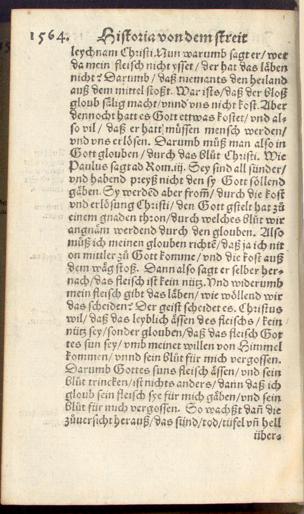 1564. Historia von dem streit
leychnam Christi. Nun warumb sagt er / wer
da mein fleisch nicht ysset / der hat das läben
nicht? Darumb / daß niemants den heiland
auß dem mittel stoßt. War ists / daß der bloß
gloub sälig macht / vnnd vns nicht kost. Aber
dennocht hatt es Gott ettwas kostet / vnd al-
so vil / daß er hatt müssen mensch werden /
vnd vns erlösen. Darumb müß man also in
Gott glouben / durch das blůt Christi. Wie
Paulus sagt ad Rom. iij. Sey sind all sünder /
vnd habend preyß nicht den sy Gott söllend
gäben. Sy werdēd aber from̄ / durch die kost
vnd erlösung Christi / den Gott gstelt hat zů
einem gnaden thron / durch welches blůt wir
angnäm werdend durch den glouben. Also
můß ich meinen glouben richtē / daß ja ich nit
on mittler zů Gott komme / vnd die kost auß
dem wäg stoß. Dann also sagt er selber her-
nach / das fleisch ist kein nütz. Vnd widerumb
mein fleisch gibt das läben / wie wöllend wir
das scheiden? Der geist scheidet es. Christus
wil / daß das leyblich ässen des fleischs / kein
nütz sey / sonder glouben / daß das fleisch Got
tes sun sey / vmb meinet willen von Himmel
kommen / vnnd sein blůt für mich vergossen.
Darumb Gottes suns fleisch ässen / vnd sein
blůt trincken / ist nichts anders / dann daß ich
gloub sein fleisch sye für mich gäben / vnd sein
blůt für mich vergossen. So wachßt dañ die
zůuersicht herauß / das sünd / tod / tüfel vñ hell
über-